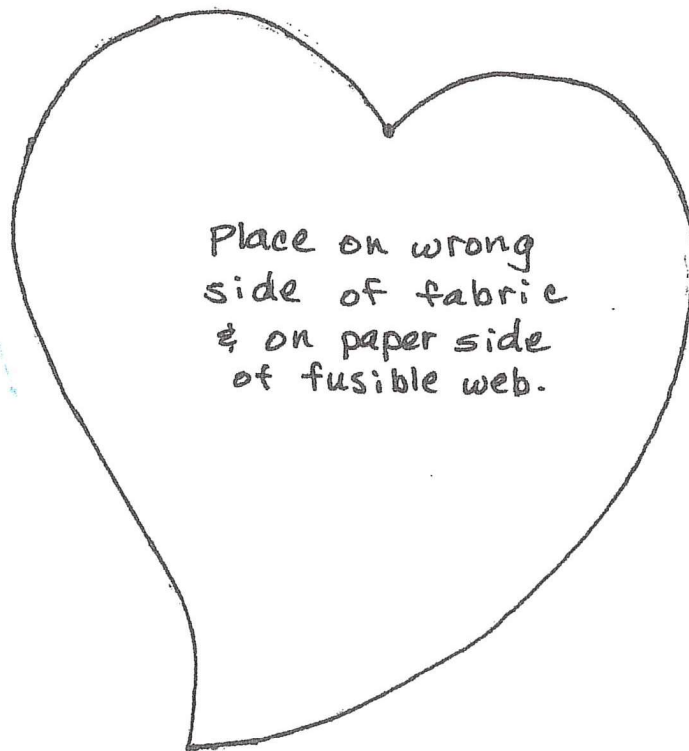 Place on wrong
side of fabric
& on paper side
of fusible web.